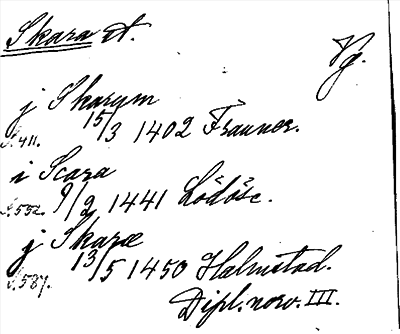 Skara st.
Vg.
j Skarum
S. 411. 15/3 1402 Frauner.
i Scara
S. 552. 9/2 1441 Lödöse.
j Skaræ
S. 587. 13/5 1450 Halmstad.
Dipl. norv. III.